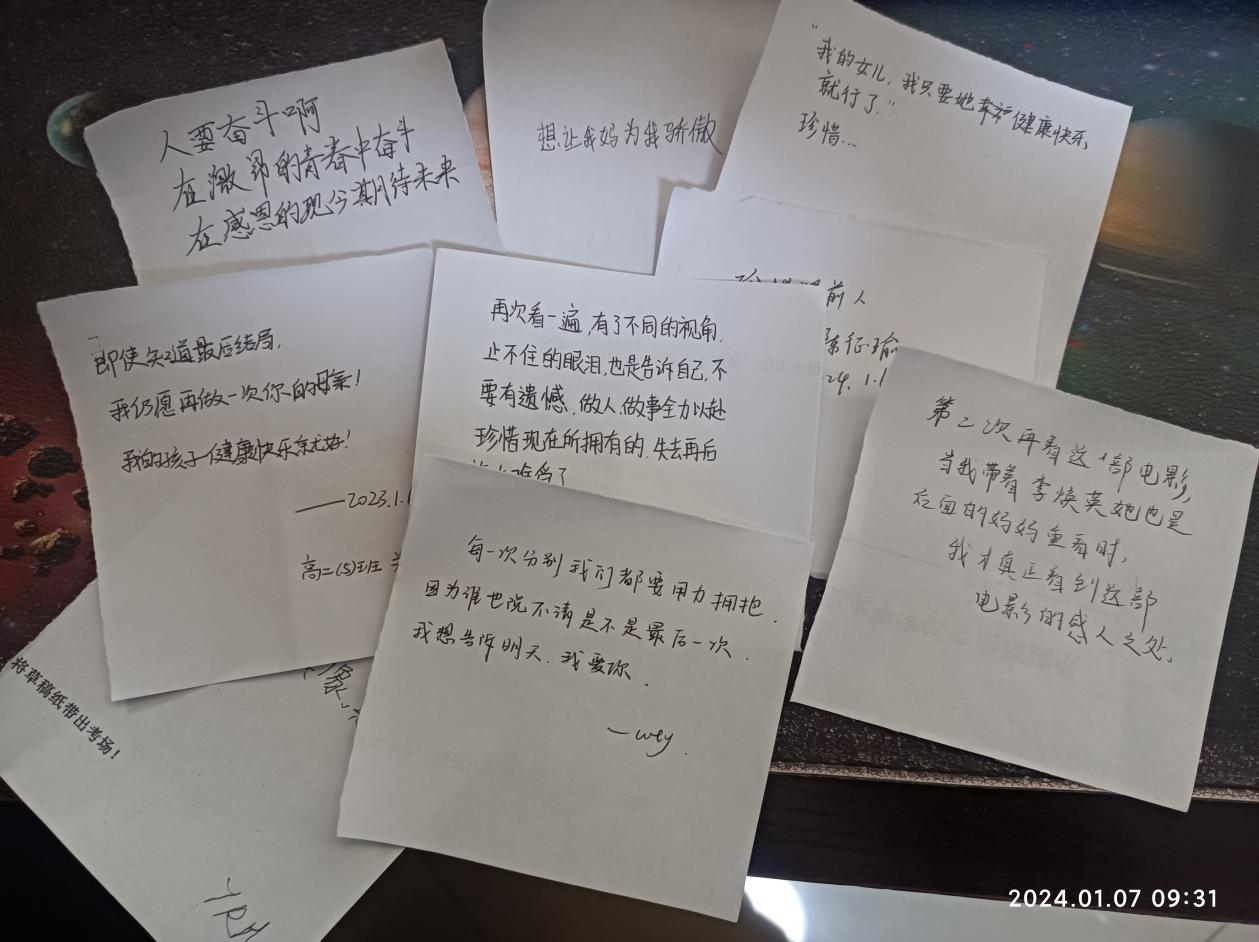 人要奋斗啊
在激昂的青春中奋斗
在感恩的现今期待未来
想让我妈为我骄傲
"我的女儿，我只要她幸福健康快乐，
就行了."
珍惜...
前人
征瑜
24. 1.
「即使知道最后结局，
我仍愿再做一次你的母亲！
我的孩子健康快乐就好！
——2023.1.
高二(5)班
再次看一遍,有了不同的视角,
止不住的眼泪,也是告诉自己,不
要有遗憾,做人,做事全力以赴
珍惜现在所拥有的.失去再后
第二次再看这一部电影,
当我带着李焕英她也是
后面的妈妈重看时,
我才真正看到这部
电影的感人之处.
每一次分别我们都要用力拥抱.
因为谁也说不清是不是最后一次.
我想告诉明天.我爱你.
—wsy.
将草稿纸带出考场！
2024.01.07 09:31